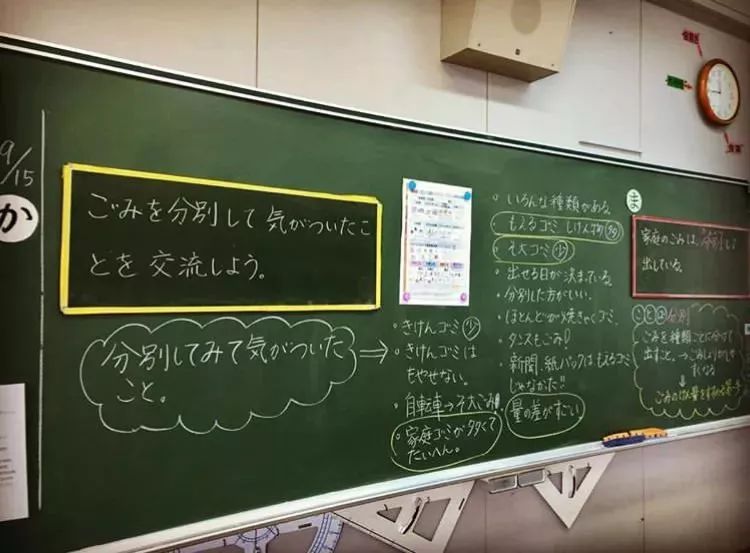 9/15
か
ごみを分別して気がついたこ
とを交流しよう。
分別してみて気がついた
こと。
⇒
・きけんゴミ 少
・きけんゴミは
もやせない。
・自転車→そ大ごみ!
・家庭ゴミが多くて
たいへん。
・いろんな種類がある。
もえるゴミ しげん物 多
・そ大ゴミ 少
・出せる日が決まっている。
・分別した方がいい。
・ほとんどが焼きゃくゴミ。
・タンスもごみ!
・新聞、紙パックは、もえるゴミ
じゃなかった!!
量の差がすごい
ま
家庭のごみは、分別して
出している。
ことば 分別
ごみを種類ごとに分けて
出すこと。